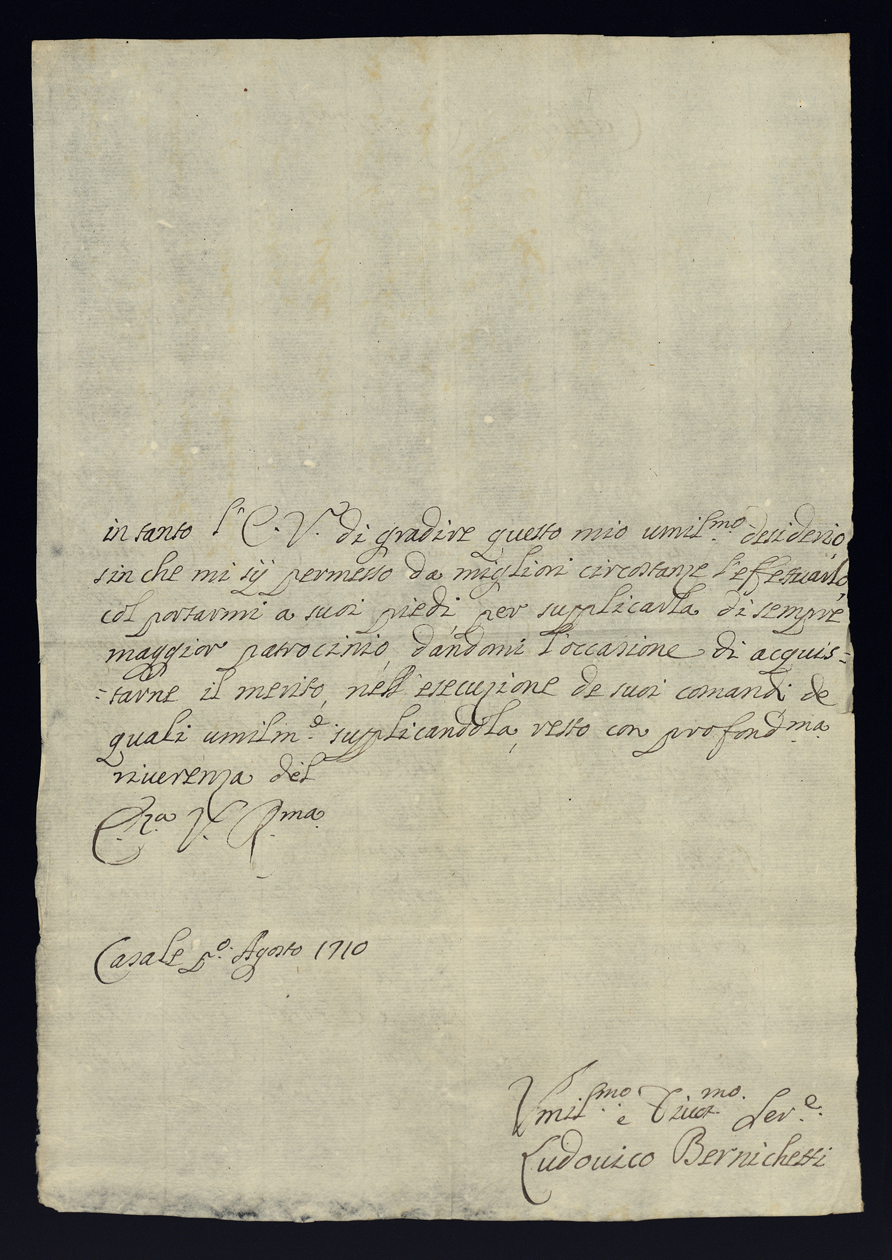 in tanto l' E. V. di gradire questo mio umil.mo desiderio
sin che mi sÿ permesso da migliori circostanze l'effettuarlo
col portarmi a suoi piedi, per supplicarla di sempre
maggior patrocinio, dandomi l'occasione di acquis=
=tarne il merito, nell'esecuzione de suoi comandi de
quali umilm.e supplicandola, resto con profond.ma
riuerenza del
E.za V. R.ma
Casale p.o Agosto 1710
Vmil.mo e Diuot.mo Ser.e
Ludouico Bernichetti